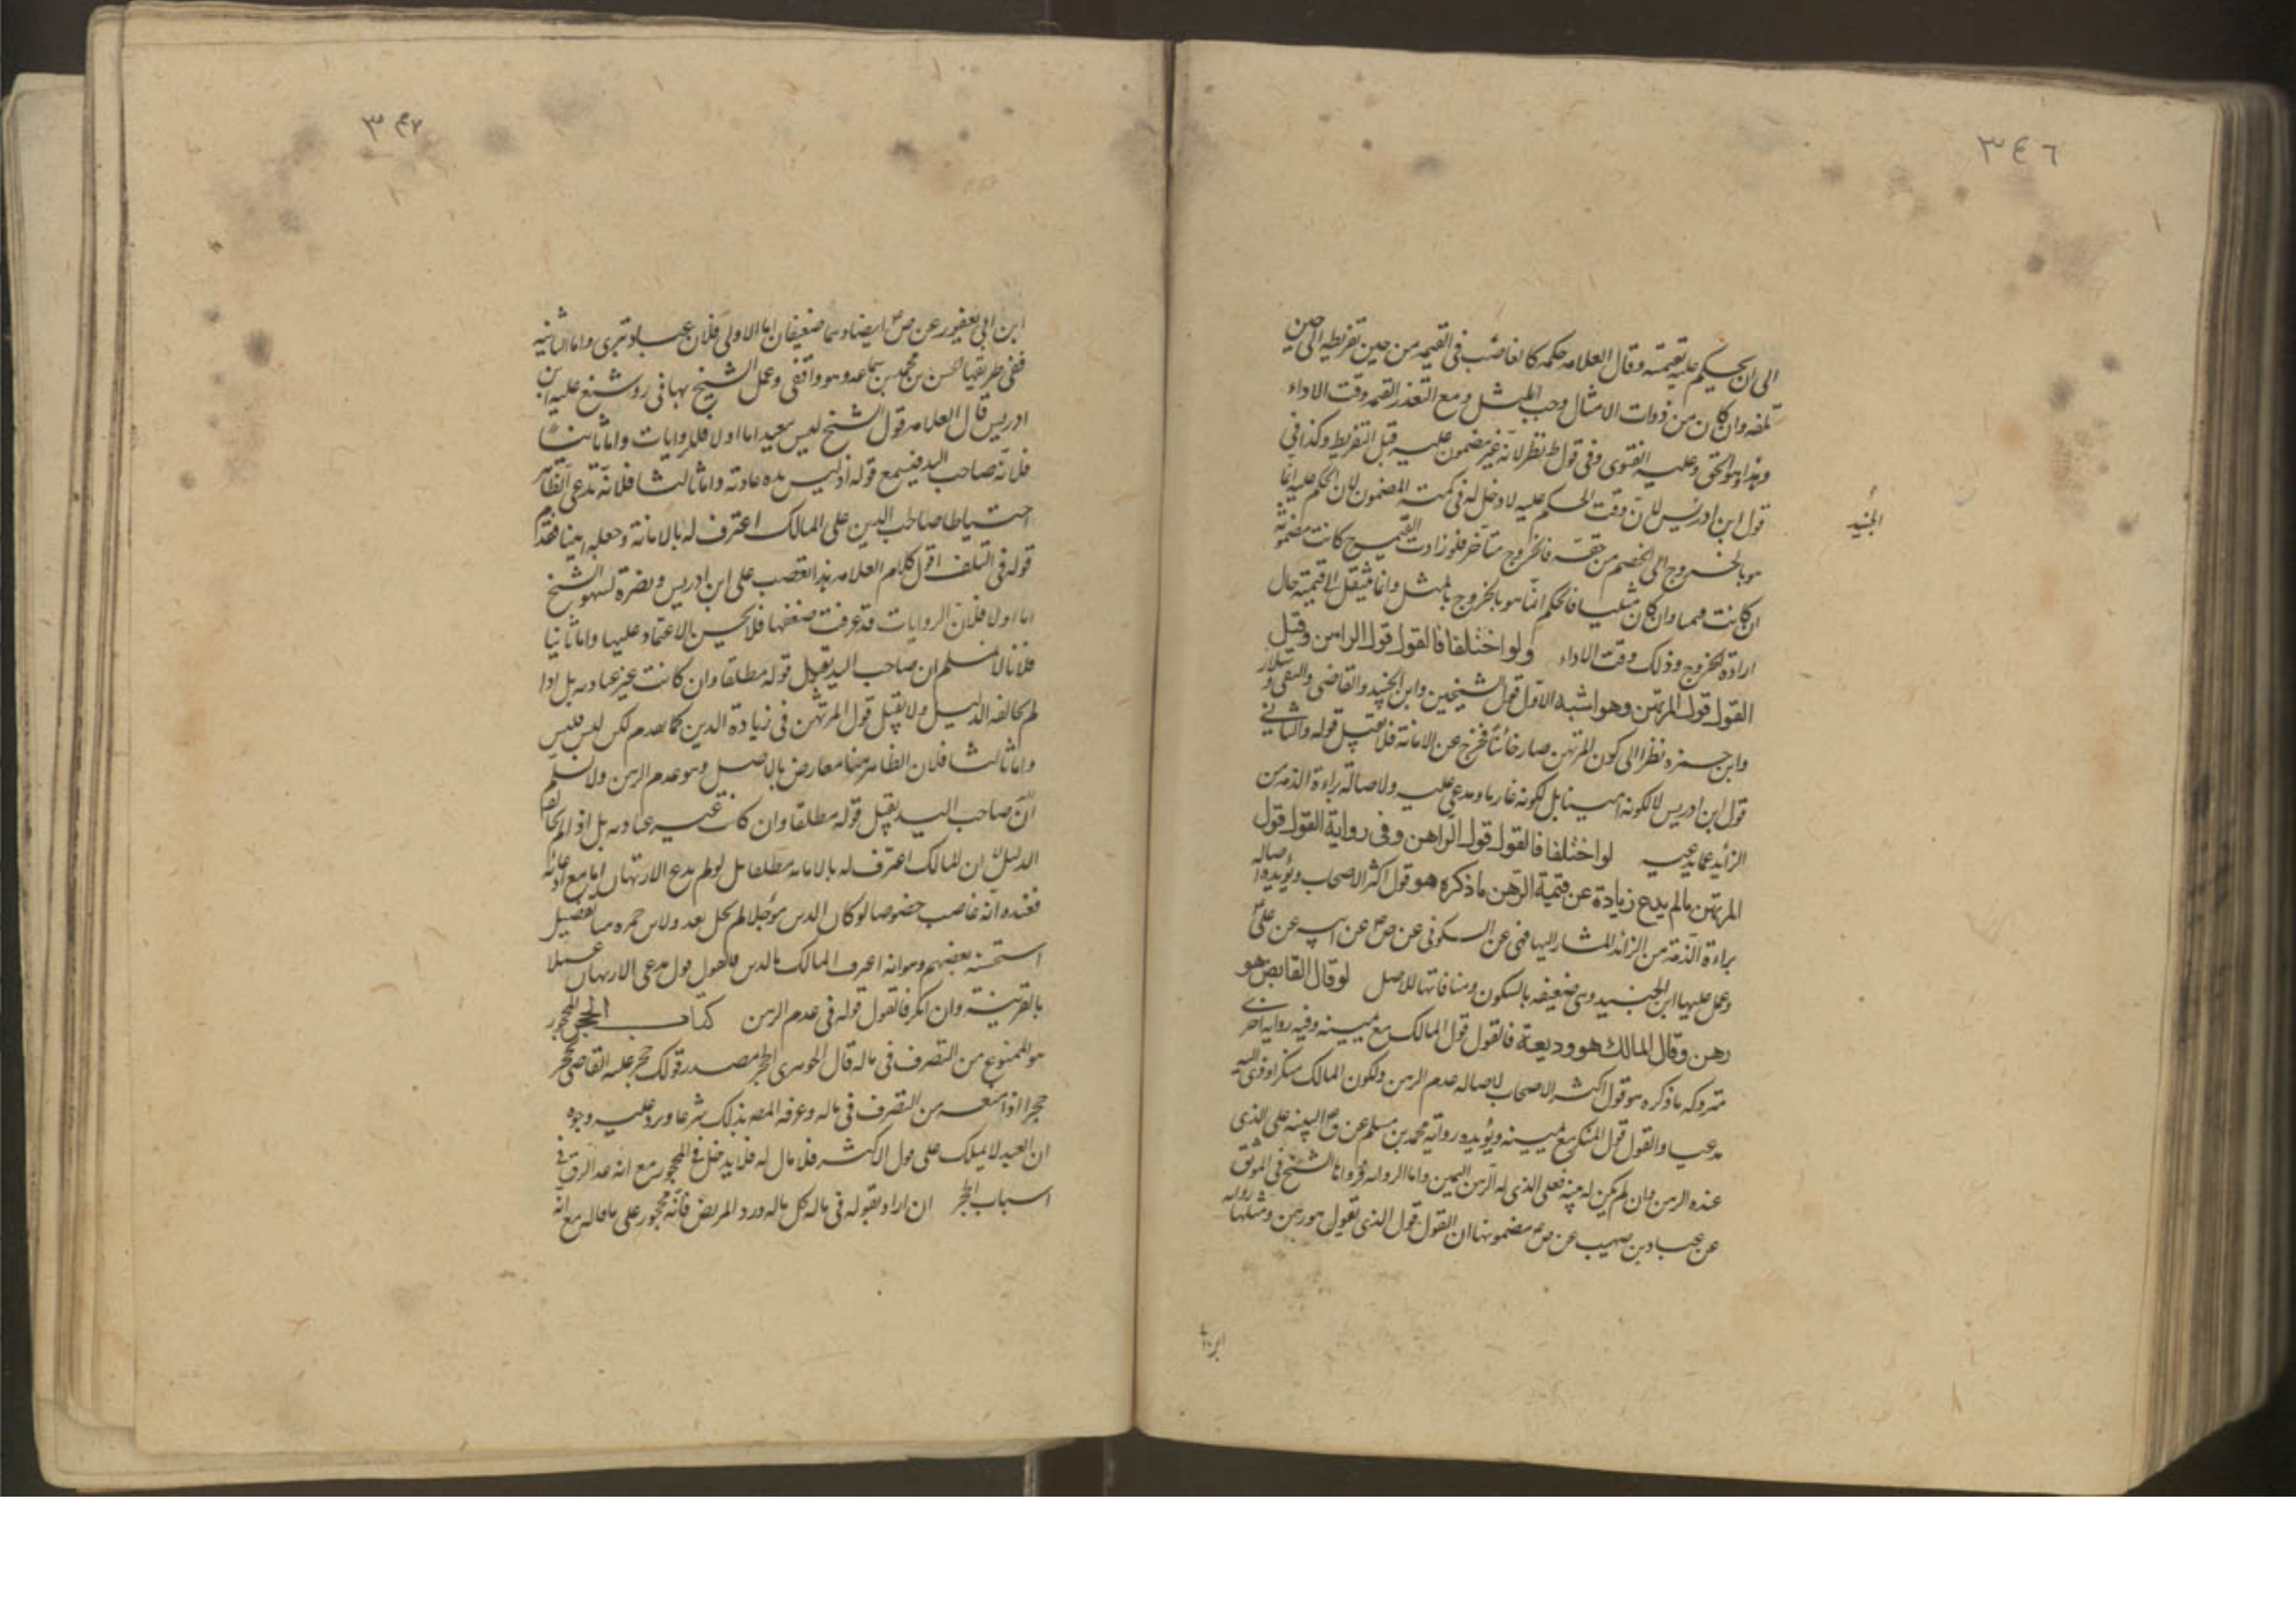 ٣٤٦
الى ان يحكم عليه بقيمته وقال العلامه حكمه كالغاصب فى القيمه من حين تفريطه الى حين
تلفه وان كان من ذوات الامثال وجب المثل ومع التعذر القيمه وقت الاداء
وهذا هو الحق وعليه الفتوى وفى قول ط نظر لانه غير مضمون عليه قبل التفريط وكذا فى
قول ابن ادريس لان وقت الحكم عليه لا دخل له فى كمية المضمون لان الحكم عليه انما
الجنيد
هو بالخروج الى الخصم من حقه فالخروج متاخر فلو زادت القيمة ح كانت مضمونة
ان كانت قيميا وان كان مثليا فالحكم انما هو بالخروج بالمثل وانما ينتقل الى قيمته حال
ارادة الخروج وذلك وقت الاداء ولو اختلفا فالقول قول الراهن وقيل
القول قول المرتهن وهو اشبه الاول قول الشيخين وابن الجنيد والقاضى والتقى وسلار
وابن حمزه نظرا الى كون المرتهن صار خائنا فخرج عن الامانة فلا يقبل قوله والثانى
قول ابن ادريس لا لكونه امينا بل لكونه غارما ومدعى عليه ولاصالة براءة الذمه من
الزايد عما يدعيه لو اختلفا فالقول قول الراهن وفى رواية القول قول
المرتهن مالم يدع زيادة عن قيمة الرهن ما ذكره هو قول اكثر الاصحاب ويؤيده اصاله
براءة الذمة من الزائد المشار اليها فهى عن السكونى عن ص ع عن ابيه عن على ع
وعمل عليها ابن الجنيد وهى ضعيفه بالسكونى ومنافاتها للاصل لو قال القابض هو
رهن وقال المالك هو وديعة فالقول قول المالك مع يمينه وفيه رواية اخرى
متروكه ما ذكره هو قول اكثر الاصحاب لاصاله عدم الرهن ولكون المالك منكرا وذى اليد
مدعيا والقول قول المنكر مع يمينه ويؤيده رواية محمد بن مسلم عن ق ع البينه على الذى
عنده الرهن فان لم يكن له بينه فعلى الذى له الرهن اليمين واما الروايه فرواها الشيخ فى الموثق
عن عباد بن صهيب عن ص ع مضمونها ان القول قول الذى يقول هو رهن ومثلها روايه
ابن ابى
٣۴٧
ابن ابى يعفور عن ص ع ايضا وهما ضعيفان اما الاولى فلان عباد بترى واما الثانيه
ففى طريقها الحسن بن محمد بن سماعه وهو واقفى وعمل الشيخ بهما فى ر وشنع عليه ابن
ادريس قال العلامه قول الشيخ ليس ببعيد اما اولا فللروايات واما ثانيا
فلانه صاحب اليد فيسمع قوله اذ ليس يده عادية واما ثالثا فلانه تدعى الظاهر
احتياطا صاحب الدين على المالك اعترف له بالامانة وجعله امينا فقدم
قوله فى التلف اقول كلام العلامه هذا تعصب على ابن ادريس ونصرة لسهو الشيخ
اما اولا فلان الروايات قد عرفت ضعفها فلا يحسن الاعتماد عليها واما ثانيا
فلانا لا نسلم ان صاحب اليد يقبل قوله مطلقا وان كانت غير عاديه بل اذا
لم يخالفه الدليل ولا يقبل قول المرتهن فى زيادة الدين كما تقدم لكن ليس فليس
واما ثالثا فلان الظاهر هنا معارض بالاصل وهو عدم الرهن ولا نسلم
ان صاحب اليد يقبل قوله مطلقا وان كانت غير عاديه بل اذا لم يخالفه
الدليل ان المالك اعترف له بالامانه مطلقا بل لو لم يدع الارتهان اما مع ادعائه
فعنده انه غاصب خصوصا لو كان الدين مؤجلا لم يحل بعد ولابن حمزه هنا تفصيل
استحسنه بعضهم وهو انه ان اعترف المالك بالدين فالقول قول مدعى الارتهان عملا
بالقرينة وان انكر فالقول قوله فى عدم الرهن كتاب الحجر المحجور
هو الممنوع من التصرف فى ماله قال الجوهرى الحجر مصدر قولك حجر عليه القاضى يحجر
حجرا اذا منعه من التصرف فى ماله وعرفه المصه بذلك شرعا ويرد عليه وجوه
ان العبد لا يملك على قول الاكثر فلا مال له فلا يدخل فى المحجور مع انه عد الرق فى
اسباب الحجر ان اراد بقوله فى ماله كل ماله ورد المريض فانه محجور على ما قاله مع انه